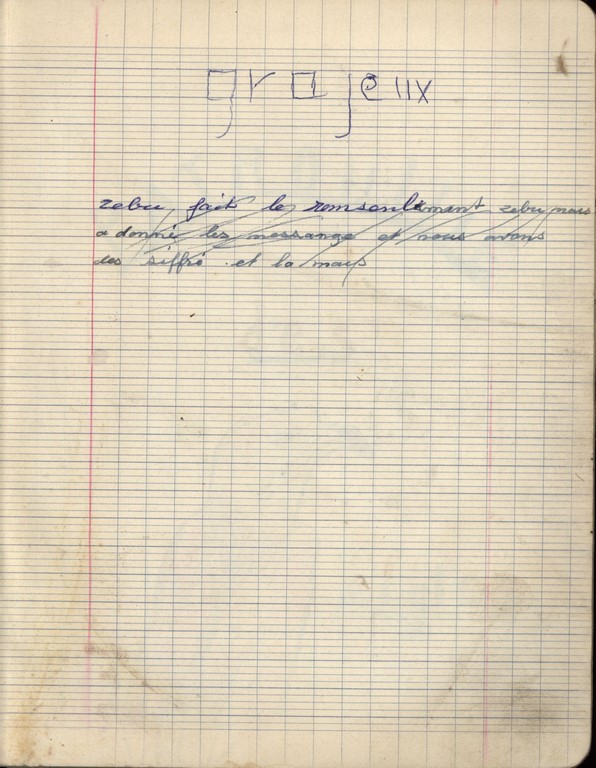 grajeux
zebu fait le remsenlemant zebu nous
a donné les messange et nous avons
des siffré et la